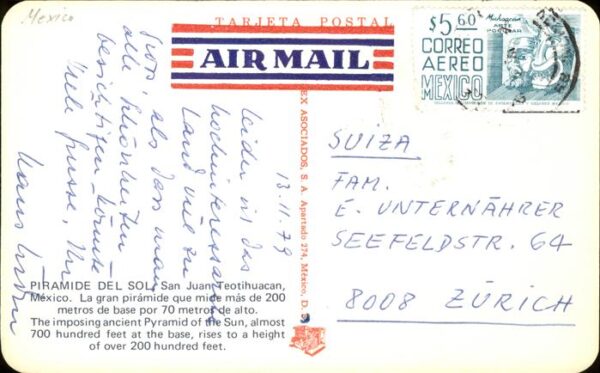 Mexico
TARJETA POSTAL
AIR MAIL
$5.60
CORREO
AEREO
MEXICO
Michoacán
ARTE
POPULAR
13.11.79
Leider ist das
hochinteressante
Land viel zu
gross, als dass man
alle Schönheiten
besichtigen könnte
Viele Grüsse, Ihr
Hans
SUIZA
FAM.
E. UNTERNÄHRER
SEEFELDSTR. 64
8008 ZÜRICH
EX ASOCIADOS, S. A. Apartado 274, México, D.
PIRAMIDE DEL SOL, San Juan Teotihuacan,
México. La gran pirámide que mide más de 200
metros de base por 70 metros de alto.
The imposing ancient Pyramid of the Sun, almost
700 hundred feet at the base, rises to a height
of over 200 hundred feet.